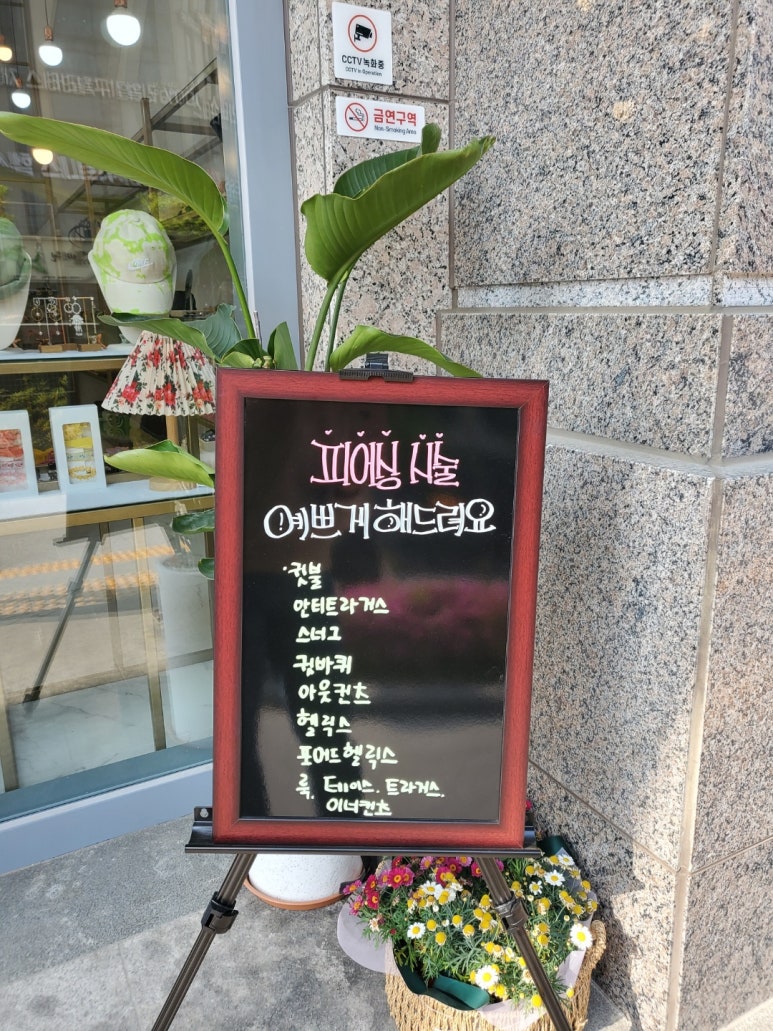 CCTV 녹화중
CCTV in Operation
금연구역
Non-Smoking Area
피어싱 시술
예쁘게 해드려요
·귓볼
안티트라거스
스너그
귓바퀴
아웃컨츠
헬릭스
포어드헬릭스
룩, 데이스, 트라거스,
이너컨츠